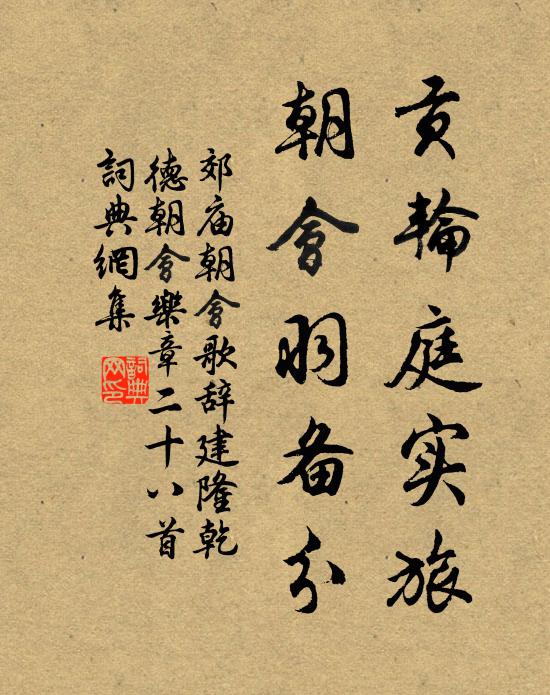 贡輪庭实旅
朝會羽备分
郊庙朝會歌辞建隆乾
德朝會樂章二十八首
詞典網集
詞典网印